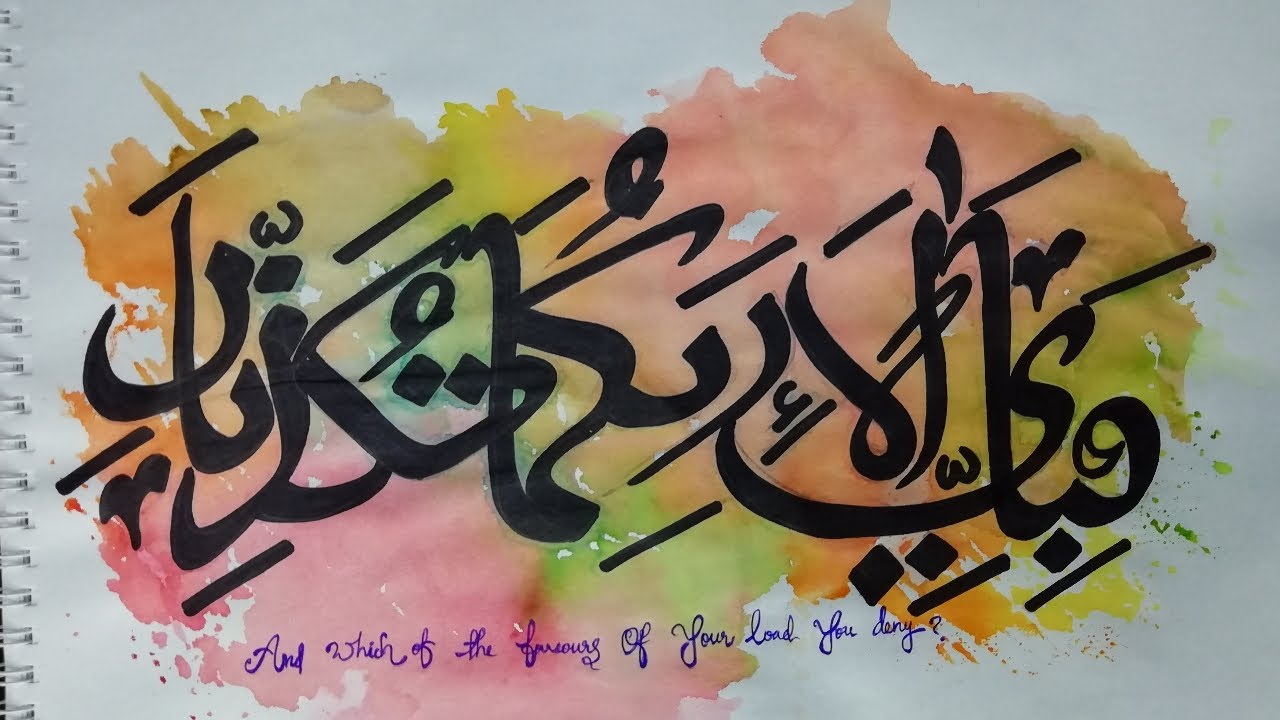 فَبِأَيِّ آلَاءِ رَبِّكُمَا تُكَذِّبَانِ
And Which of the favours Of Your load You deny?